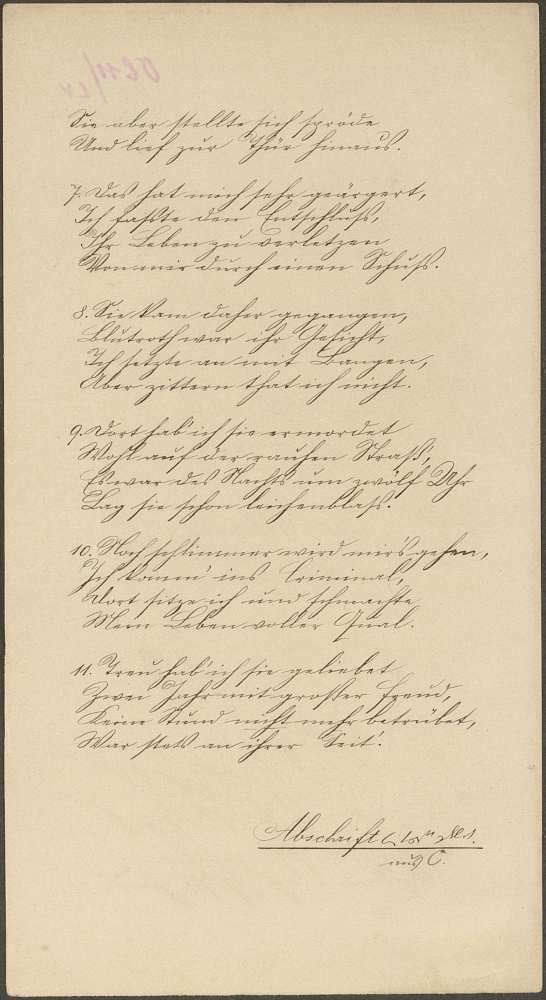 Sie aber stellte sich spröde
Und lief zur Thür hinaus.
7. Das hat mich sehr geärgert,
Ich faßte den Entschluß,
Ihr Leben zu verletzen
Von mir durch einen Schuß.
8. Sie kam daher gegangen,
Blutroth war ihr Gesicht,
Ich setzte an mit Bangen,
Aber zittern that ich nicht.
9. Dort hab' ich sie ermordet
Wohl auf der rauhen Straß',
Es war des Nachts um zwölf Uhr
Lag sie schon leichenblaß.
10. Noch schlimmer wird mir's gehen,
Ich komm' ins Criminal,
Dort sitze ich und schmachte
Mein Leben voller Qual.
11. Treu hab' ich sie geliebet
Zwei Jahr mit großer Freud,
Keine Stund nicht mehr betrübet,
War stets an ihrer Seit'.
Abschrift
aus C.